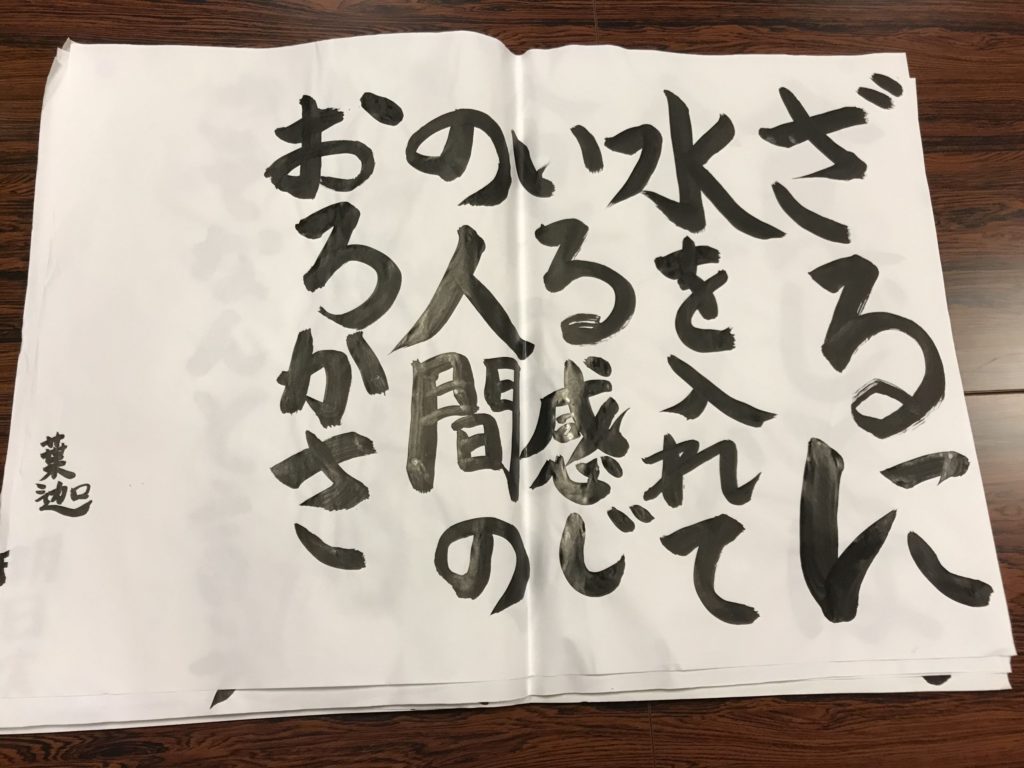 ざるに
水を入れて
いる感じ
の人間の
おろかさ
葉迦